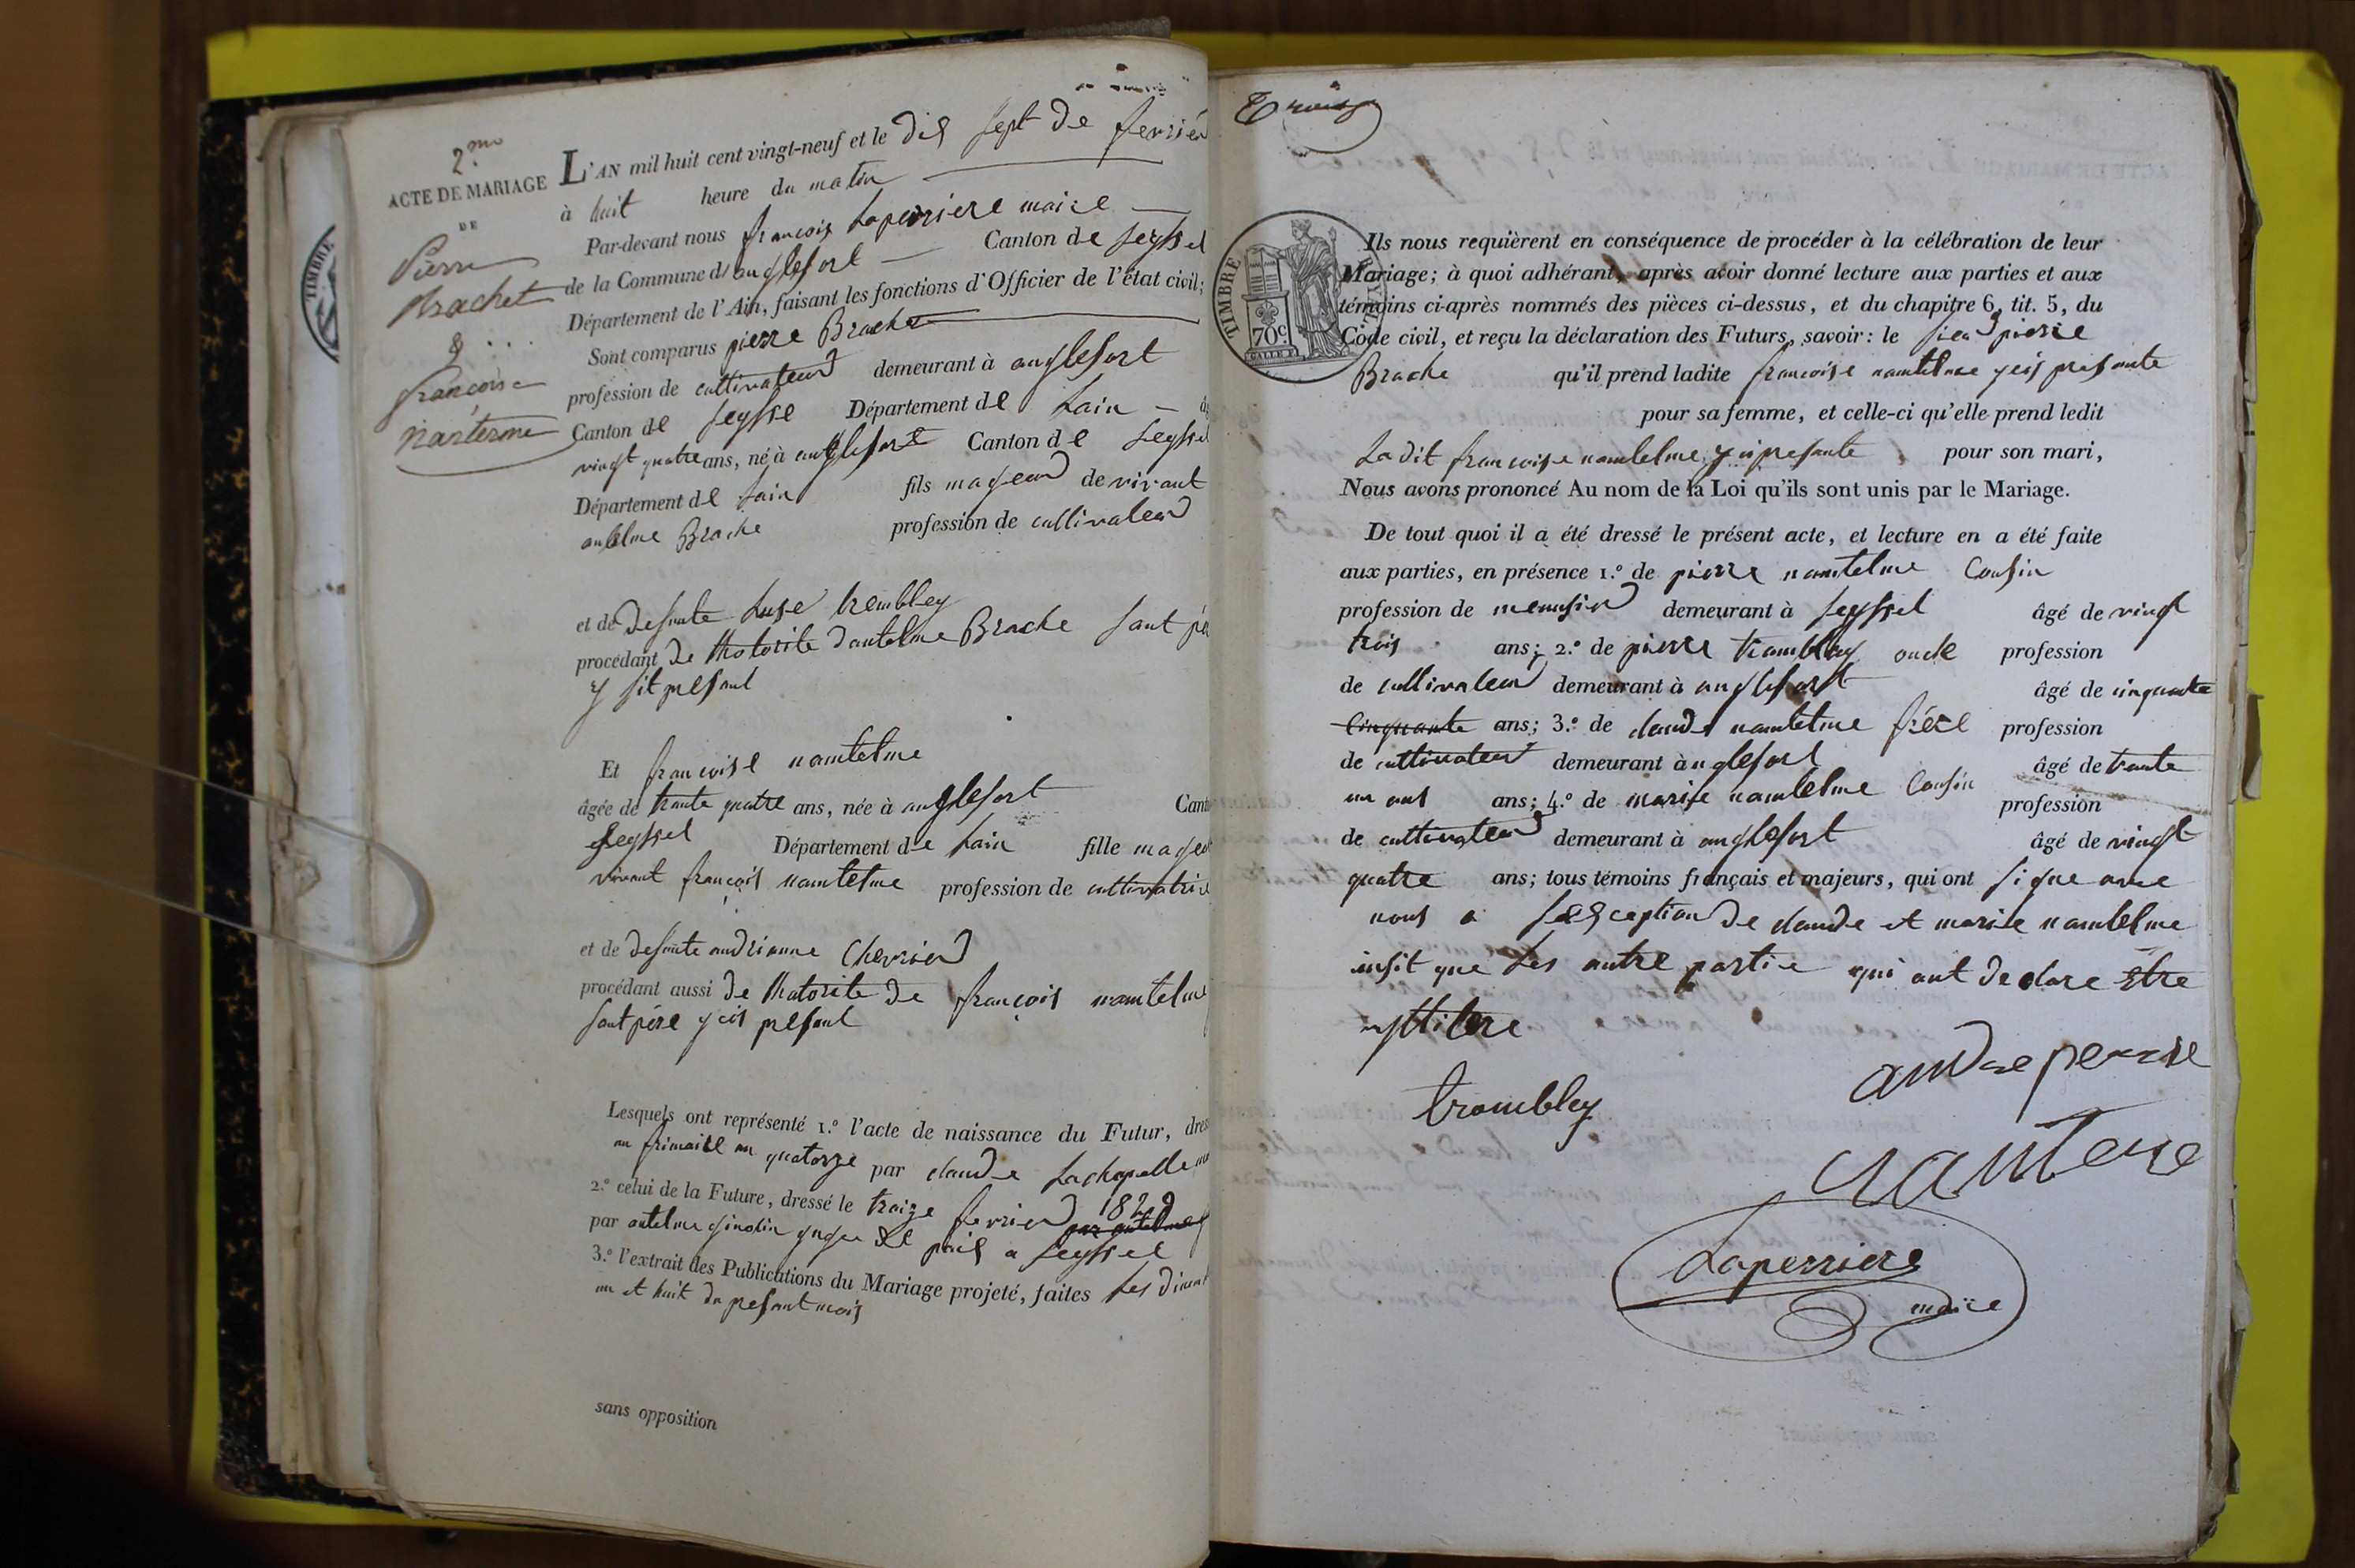 2.me
ACTE DE MARIAGE
DE
Pierre
Brachet
& ...
françoise
Nanterme
TIMBRE
L'AN mil huit cent vingt-neuf et le dix sept de fevrier
à huit heure du matin
Par-devant nous françois Laperriere maire
de la Commune d'anglefort Canton de seyssel
Département de l'Ain, faisant les fonctions d'Officier de l'état civil;
Sont comparus pierre Brache
profession de cultivateur demeurant à anglefort
Canton de seysse Département de Lain
vingt quatre ans, né à anglefort Canton de seyssel
Département de Lain fils mageur de vivant
antelme Brache profession de cultivateur
et de defunte Luse trembley
procédant de Lhotorite dantelme Brache sant pér
y sit presant
Et francoise namtelme
âgée de trante quatre ans, née à anglefort Cant
seyssel Département de Lain fille mageu
vivant françois namtelme profession de cultivatrice
et de defunte andrianne Chevrier
procédant aussi de Lhatorite de françois namtelme
sant pére y cit presant
Lesquels ont représenté 1.º l'acte de naissance du Futur, dres
an frimaire an quatorze par claude Lachapelle
2.º celui de la Future, dressé le traize fevrier 1829
par antelme ginolin guge de paix a seyssel
3.º l'extrait des Publications du Mariage projeté, faites Les diman
un et huit du presant mois
sans opposition
Trois
TIMBRE ROYAL
70 c.
Ils nous requièrent en conséquence de procéder à la célébration de leur
Mariage; à quoi adhérant, après avoir donné lecture aux parties et aux
témoins ci-après nommés des pièces ci-dessus, et du chapitre 6, tit. 5, du
Code civil, et reçu la déclaration des Futurs, savoir: le sieur pierre
Brache qu'il prend ladite francoise namtelme y cis presante
pour sa femme, et celle-ci qu'elle prend ledit
La dit francoise namtelme y si presante pour son mari,
Nous avons prononcé Au nom de la Loi qu'ils sont unis par le Mariage.
De tout quoi il a été dressé le présent acte, et lecture en a été faite
aux parties, en présence 1.º de pierre namtelme Cousin
profession de menusier demeurant à seyssel âgé de vingt
trois ans; 2.º de pierre trambley oncle profession
de cultivateur demeurant à anglefort âgé de cinquante
cinquante ans; 3.º de claude namtelme frére profession
de cultivateur demeurant à nglefort âgé de trante
un ans ans; 4.º de marise namtelme Cousin profession
de cultivateur demeurant à anglefort âgé de vingt
quatre ans; tous témoins français et majeurs, qui ont signe avec
nous a sexception de claude et marise namtelme
insit que Les autre partie qui ant declare étre
ystitere
trombley
Nantere
Laperriere
maire